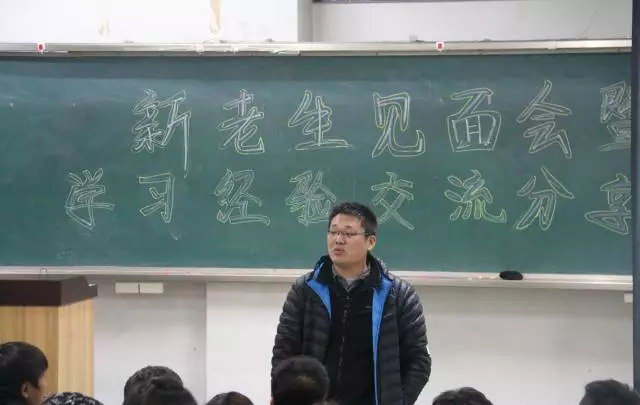 新老生见面会暨
学习经验交流分享